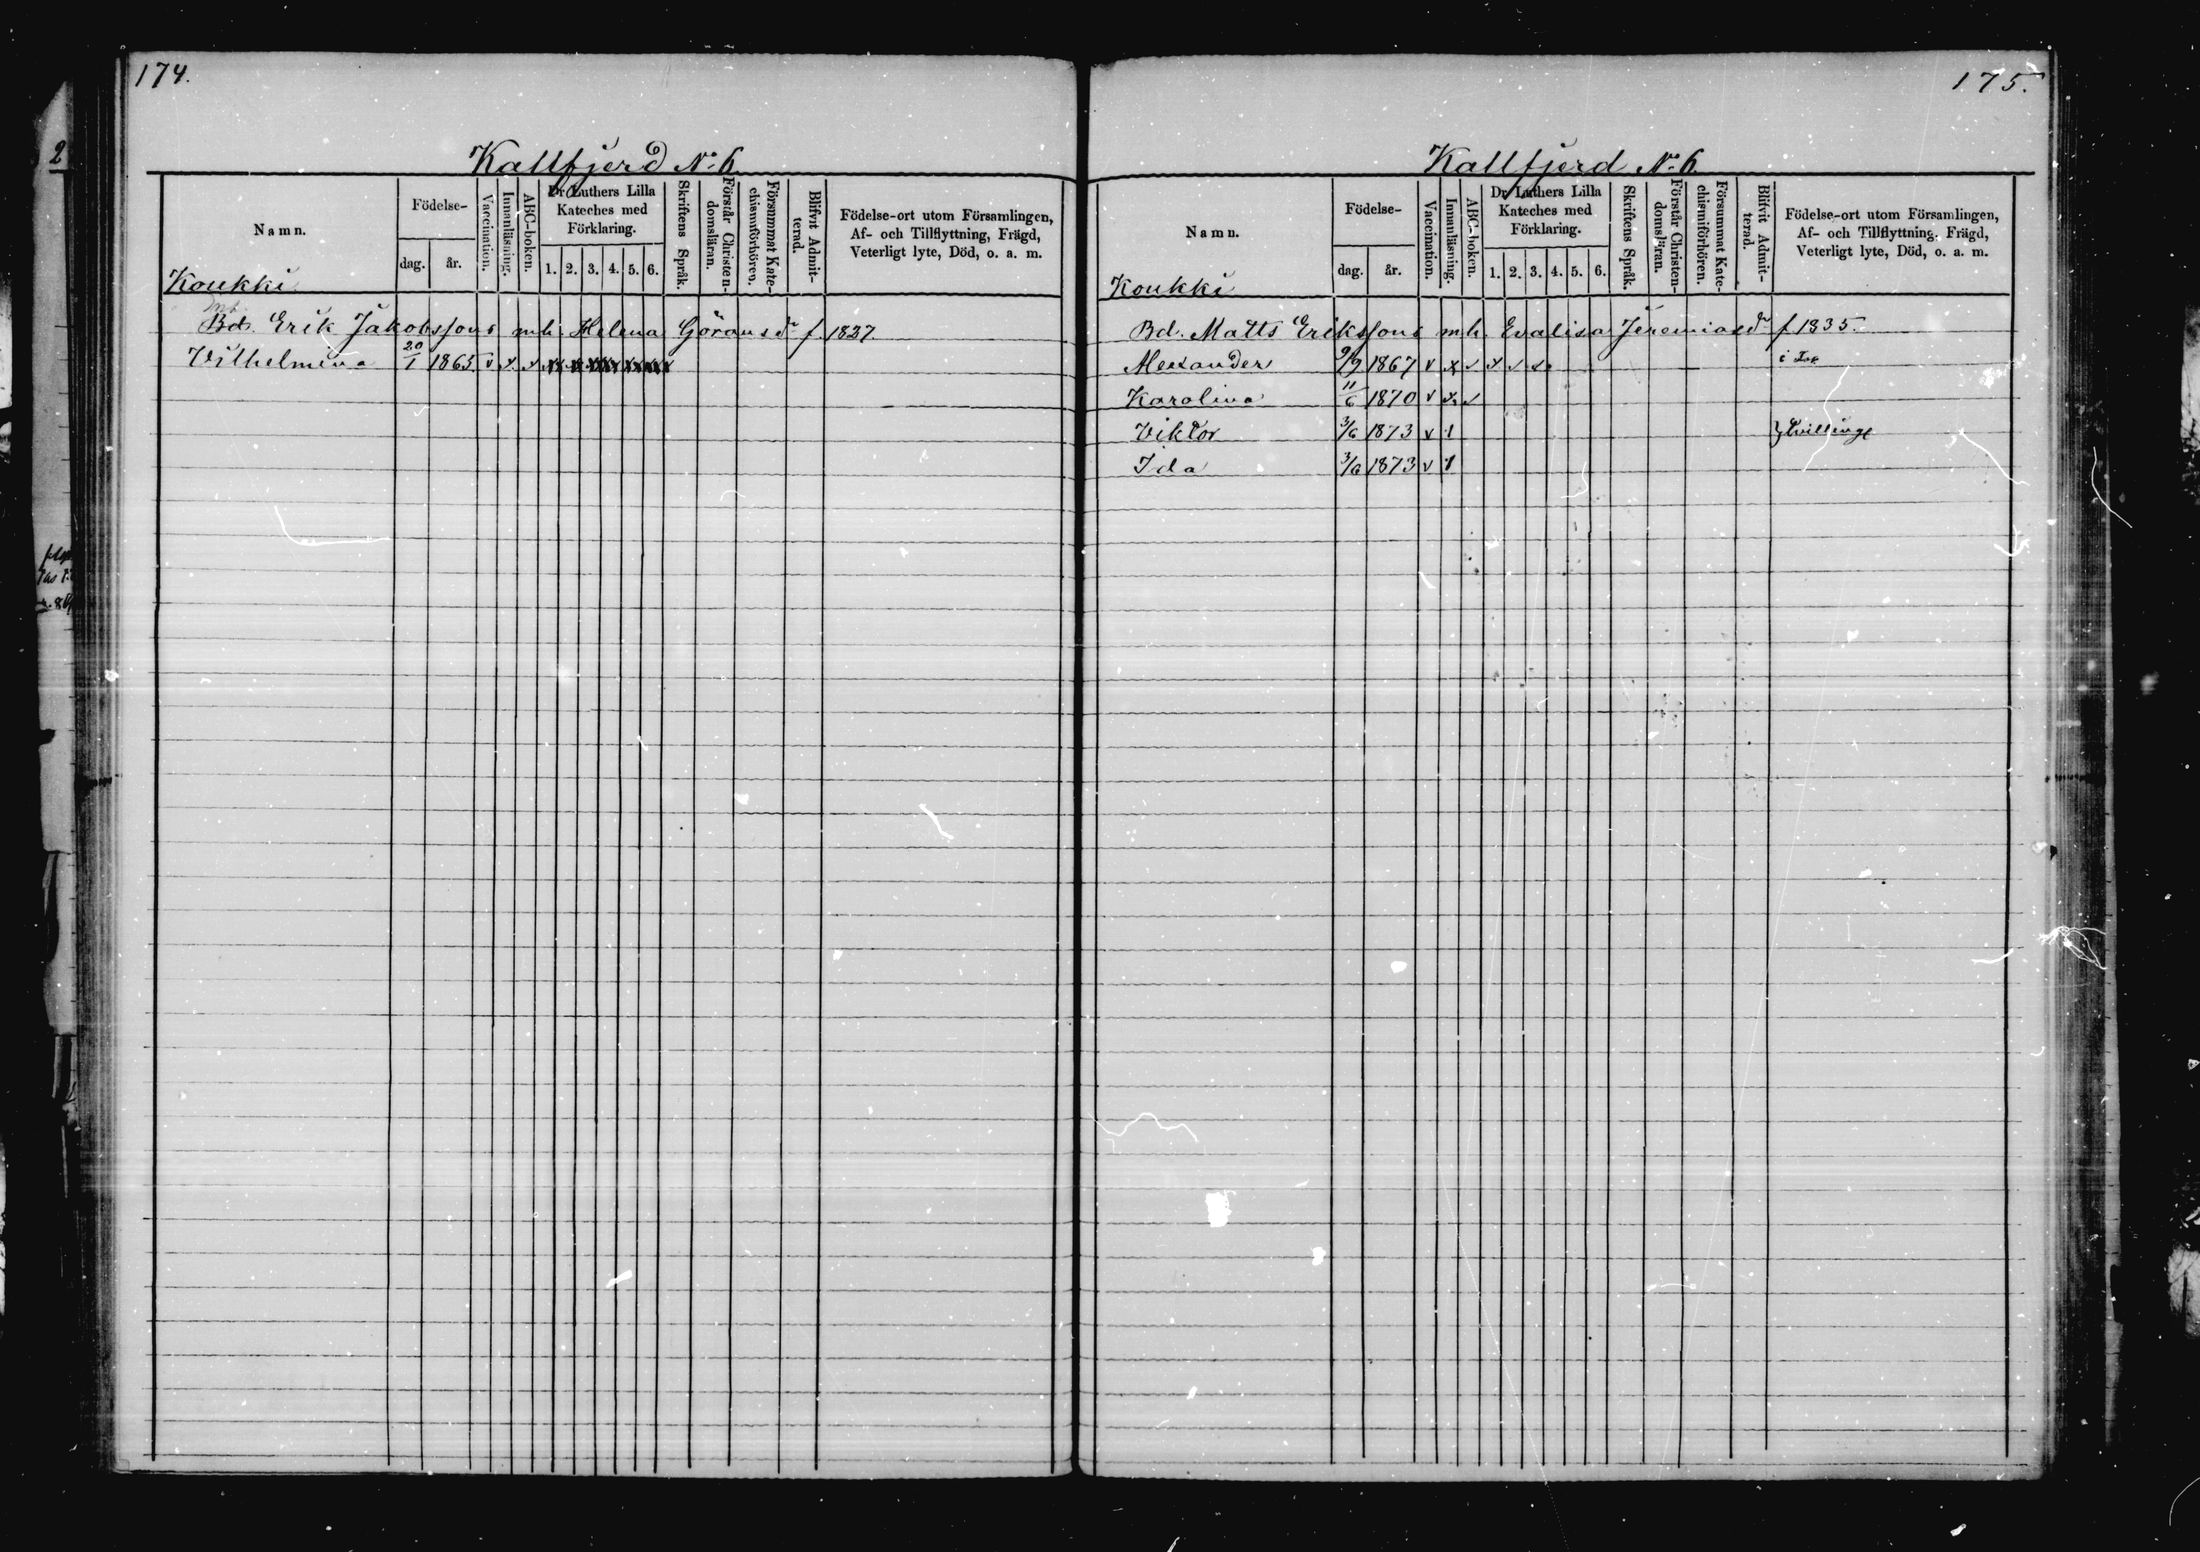 174.
Kallfjerd No. 6
Namn.
Födelse-
dag. år.
Vaccination.
Innanläsning.
ABC-boken.
Dr Luthers Lilla
Kateches med
Förklaring.
1. 2. 3. 4. 5. 6.
Skriftens Språk.
Förstår Christen-
domsläran.
Försummat Kate-
chismiförhören.
Blifvit Admit-
terad.
Födelse-ort utom Församlingen,
Af- och Tillflyttning, Frägd,
Veterligt lyte, Död, o. a. m.
Koukki
Bd. Erik Jakobssons m.h. Helena Göransdr f. 1837.
Vilhelmina 20/1 1865 v x v x x x x x x
175.
Kallfjerd No. 6.
Namn.
Födelse-
dag. år.
Vaccination.
Innanläsning.
ABC-boken.
Dr Luthers Lilla
Kateches med
Förklaring.
1. 2. 3. 4. 5. 6.
Skriftens Språk.
Förstår Christen-
domsläran.
Försummat Kate-
chismiförhören.
Blifvit Admit-
terad.
Födelse-ort utom Församlingen,
Af- och Tillflyttning, Frägd,
Veterligt lyte, Död, o. a. m.
Koukki
Bd. Matts Erikssons m.h. Evalisa Jeremiasdr f. 1835.
Alexander 9/9 1867 v x v v v v
Karolina 11/6 1870 v x v
Viktor 3/6 1873 v 1
} Tvillingr
Ida 3/6 1873 v 1